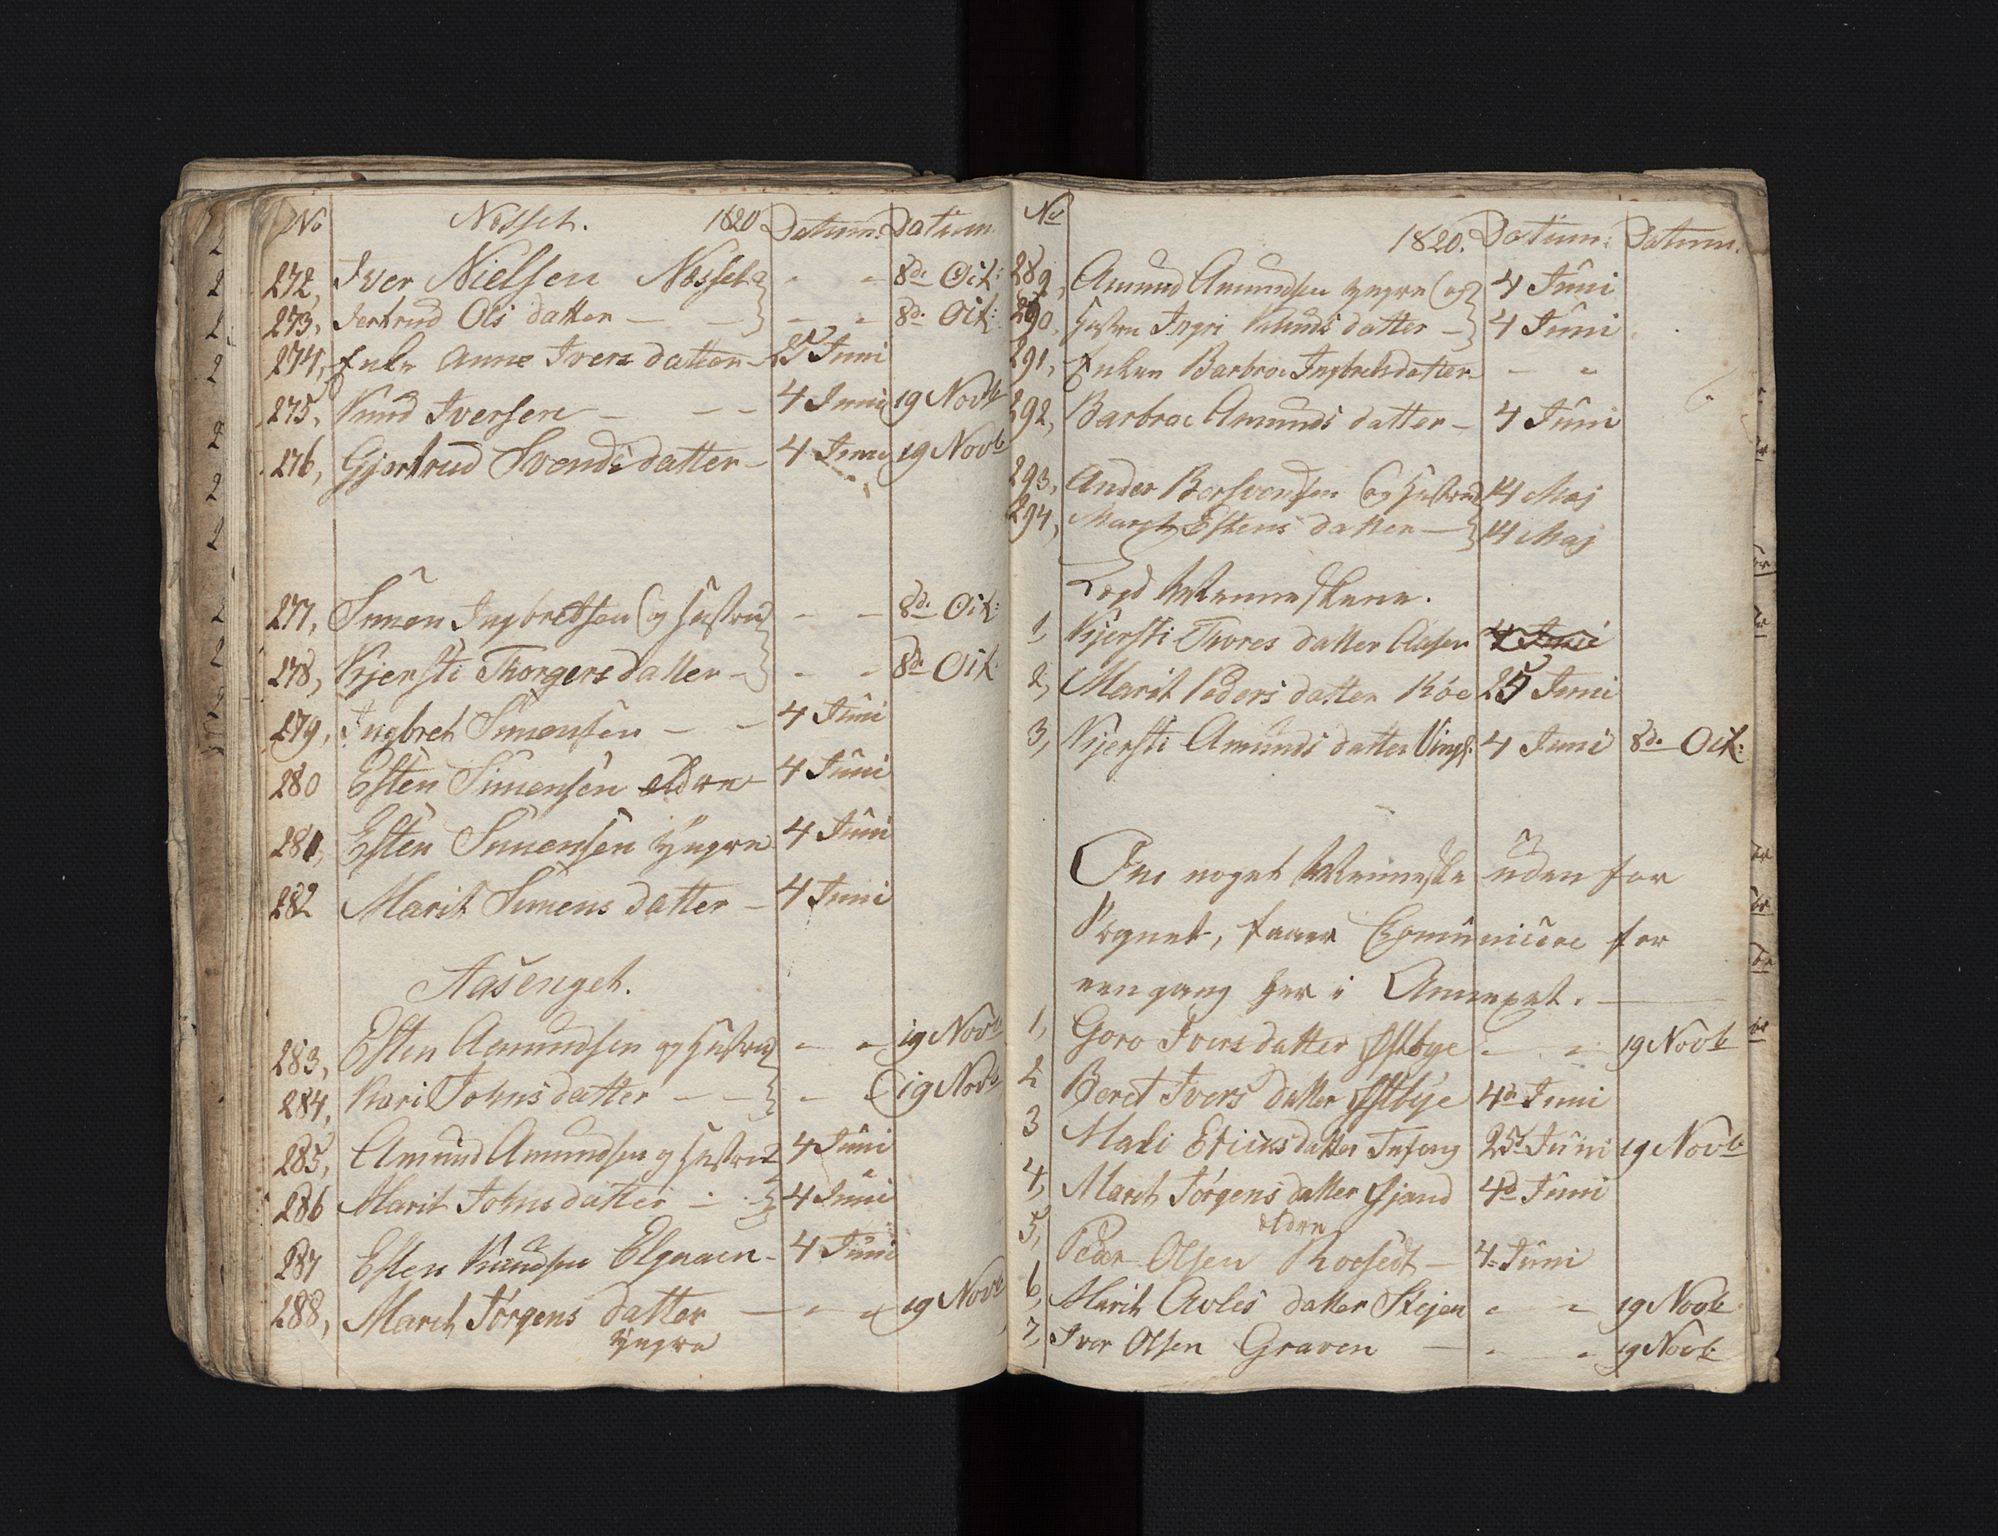 No Nesset. 1820 Datum: Datum
272, Iver Nielsen Nesset } - - 8de Oct:
273, Jertrud Ols datter - - } - - 8de Oct:
274, Enke Anne Ivers datter - 25 Juni
275, Knud Iversen - - - 4 Juni 19 Novb
276, Gjertrud Svends datter - 4 Juni 19 Novb
277, Simen Ingbretsen og Hustru } - - 8de Oct:
278, Kjersti Thorgers datter - } - - 8de Oct:
279, Ingbret Simensen - - 4 Juni
280 Esten Simensen eldre 4 Juni
281, Esten Simensen yngre 4 Juni
282 Marit Simens datter - 4 Juni
Aasenget.
283, Esten Amundsen og Hustru } - - 19 Novb
284, Kari Johns datter - - } - - 19 Novb
285, Amund Amundsen og Hustru } 4 Juni
286 Marit Johns datter - - } 4 Juni
287 Esten Knudsen Elgaaen - 4 Juni
288, Marit Jörgens datter - - - 19 Novb
yngre
No 1820. Datum: Datum.
289, Amund Amundsen yngre og } 4 Juni
290, Hustru Ingri Knuds datter - } 4 Juni
291, Enken Barbroe Ingbretsdatter - -
292, Barbroe Amunds datter - 4 Juni
293, Anders Bersvendsen og Hustru } 14 Maj
294, Marit Estens datter - } 14 Maj
Lægd Menneskene.
1, Kjersti Thores datter Aasen 4 Juni
2, Marit Peders datter Röe 25 Juni
3, Kjersti Amunds datter 4 Juni 8de Oct:
Om noget Menneske uden for
Sognet, faaer Comunicere for
een gang her i Annexet. -
1, Goro Ivers datter Østbye - - 19 Novb
2 Beret Ivers datter Østbye 4de Juni
3 Mali Erichs datter 25de Juni 19 Novb
4, Marit Jörgens datter 4de Juni
eldre
5, Peder Olsen - 4 Juni
6, Marit datter - - 19 Novb
7, Iver Olsen Graven - - - 19 Novb